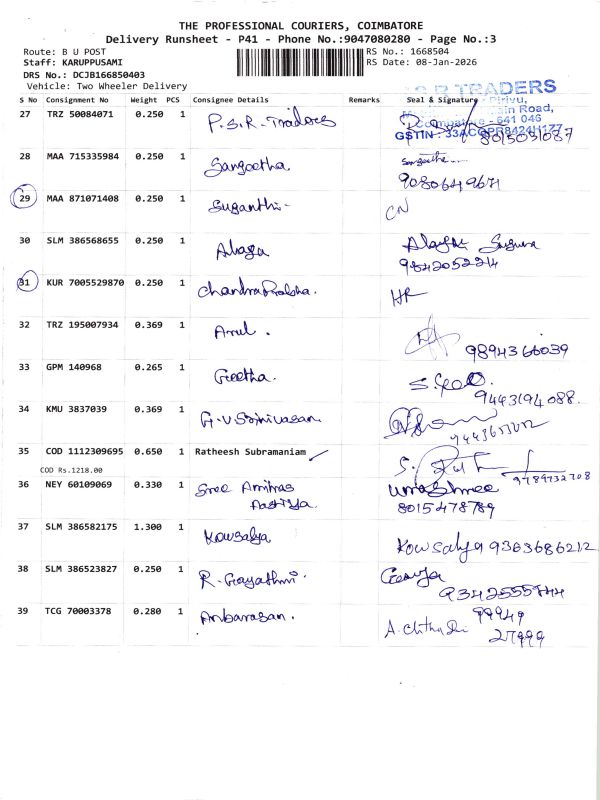 THE PROFESSIONAL COURIERS, COIMBATORE
Delivery Runsheet - P41 - Phone No.:9047080280 - Page No.:3
Route: B U POST RS No.: 1668504
Staff: KARUPPUSAMI RS Date: 08-Jan-2026
DRS No.: DCJB166850403
Vehicle: Two Wheeler Delivery
R TRADERS
Pirivu,
ain Road,
641 046
GSTIN : 33ACQPR8424H1Z7
S No Consignment No Weight PCS Consignee Details Remarks Seal & Signature
27 TRZ 50084071 0.250 1 P.S.R. Traders 8015031087
28 MAA 715335984 0.250 1 Sangeetha. Sangeetha
9080649671
29 MAA 871071408 0.250 1 Suganthi- CN
30 SLM 386568655 0.250 1 Alaga
9842052214
31 KUR 7005529870 0.250 1 ChandraPrabha. HR
32 TRZ 195007934 0.369 1 Arul. 9894366039
33 GPM 140968 0.265 1 Geetha.
9443194088.
34 KMU 3837039 0.369 1 G.V Srinivasan
35 COD 1112309695 0.650 1 Ratheesh Subramaniam ✓
COD Rs.1218.00 9789732708
36 NEY 60109069 0.330 1 Sree Umashree
8015478789
37 SLM 386582175 1.300 1 Kowsalya Kowsalya 9363686212
38 SLM 386523827 0.250 1 R. Gayathri.
9342555744
39 TCG 70003378 0.280 1 Anbarasan. 99949
27999